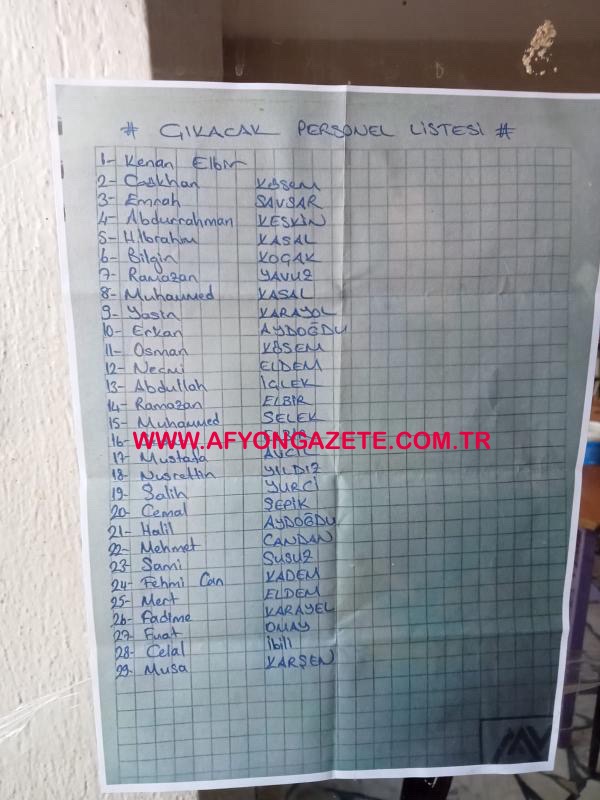 # ÇIKACAK PERSONEL LİSTESİ #
1- Kenan Elbir
2- Gökhan KÖSEM
3- Emrah SAVSAR
4- Abdurrahman KESKİN
5- H.İbrahim KASAL
6- Bilgin KOÇAK
7- Ramazan YAVUZ
8- Muhammed KASAL
9- Yasin KARAYOL
10- Erkan AYDOĞDU
11- Osman KÖSEM
12- Necmi ELDEM
13- Abdullah İÇLEK
14- Ramazan ELBİR
15- Muhammed SELEK
16-
WWW.AFYONGAZETE.COM.TR
17- Mustafa AVCIL
18- Nusrettin YILDIZ
19- Salih YURCİ
20- Cemal ŞEPİK
21- Halil AYDOĞDU
22- Mehmet CANDAN
23- Sami SUSUZ
24- Fehmi Can KADEM
25- Mert ELDEM
26- Fadime KARAYEL
27- Fuat OMAY
28- Celal İbili
29- Musa KARŞEN